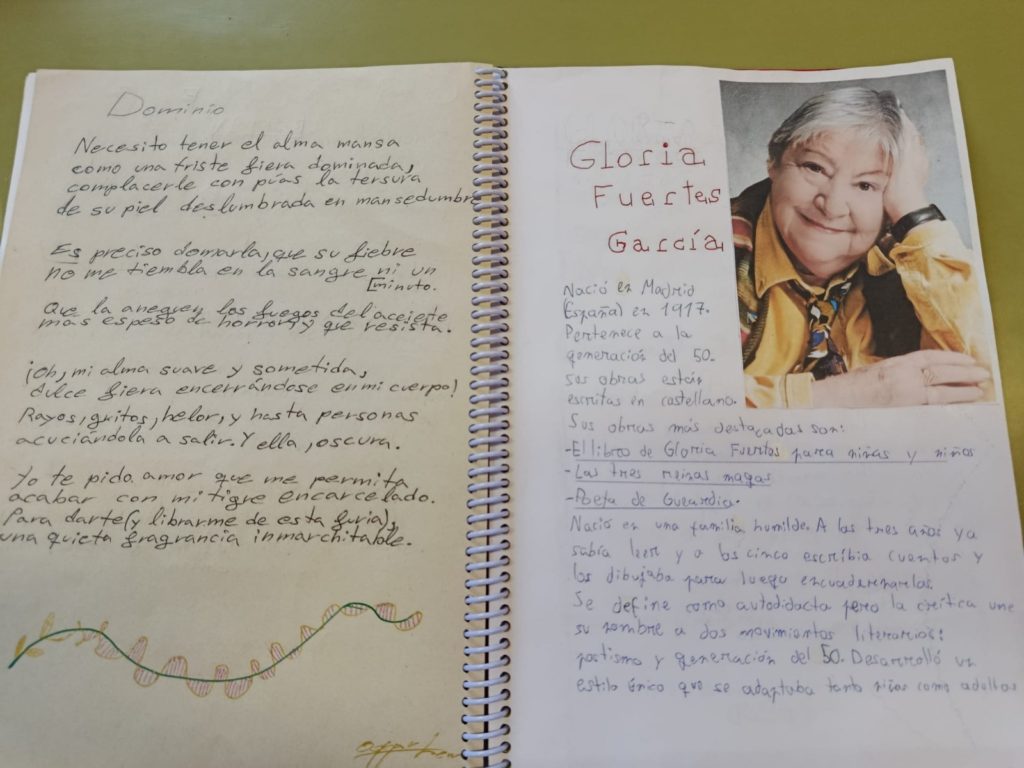 Dominio
Necesito tener el alma mansa
como una triste fiera dominada,
complacerle con púas la tersura
de su piel deslumbrada en mansedumbre
Es preciso domarla, que su fiebre
no me tiembla en la sangre ni un
minuto.
Que la aneguen los fuegos del aceite
más espeso de horror, y que resista.
¡Oh, mi alma suave y sometida,
dulce fiera encerrándese en mi cuerpo!
Rayos, gritos, helor, y hasta personas
acuciándola a salir. Y ella, oscura.
Yo te pido amor que me permita
acabar con mi tigre encarcelado.
Para darte (y librarme de esta furia),
una quieta fragrancia inmarchitable.
Gloria
Fuertes
García
Nació en Madrid
(España) en 1917.
Pertenece a la
generación del 50.
Sus obras están
escritas en castellano.
Sus obras más destacadas son:
-El libro de Gloria Fuertes para niñas y niños
-Las tres reinas magas
-Poeta de Guardia.
Nació en una familia humilde. A los tres años ya
sabía leer y a los cinco escribia cuentos y
los dibujaba para luego encuadernarlos.
Se define como autodidacta pero la crítica une
su nombre a dos movimientos literarios:
postismo y generación del 50. Desarrolló un
estilo único que se adaptaba tanto niños como adultos